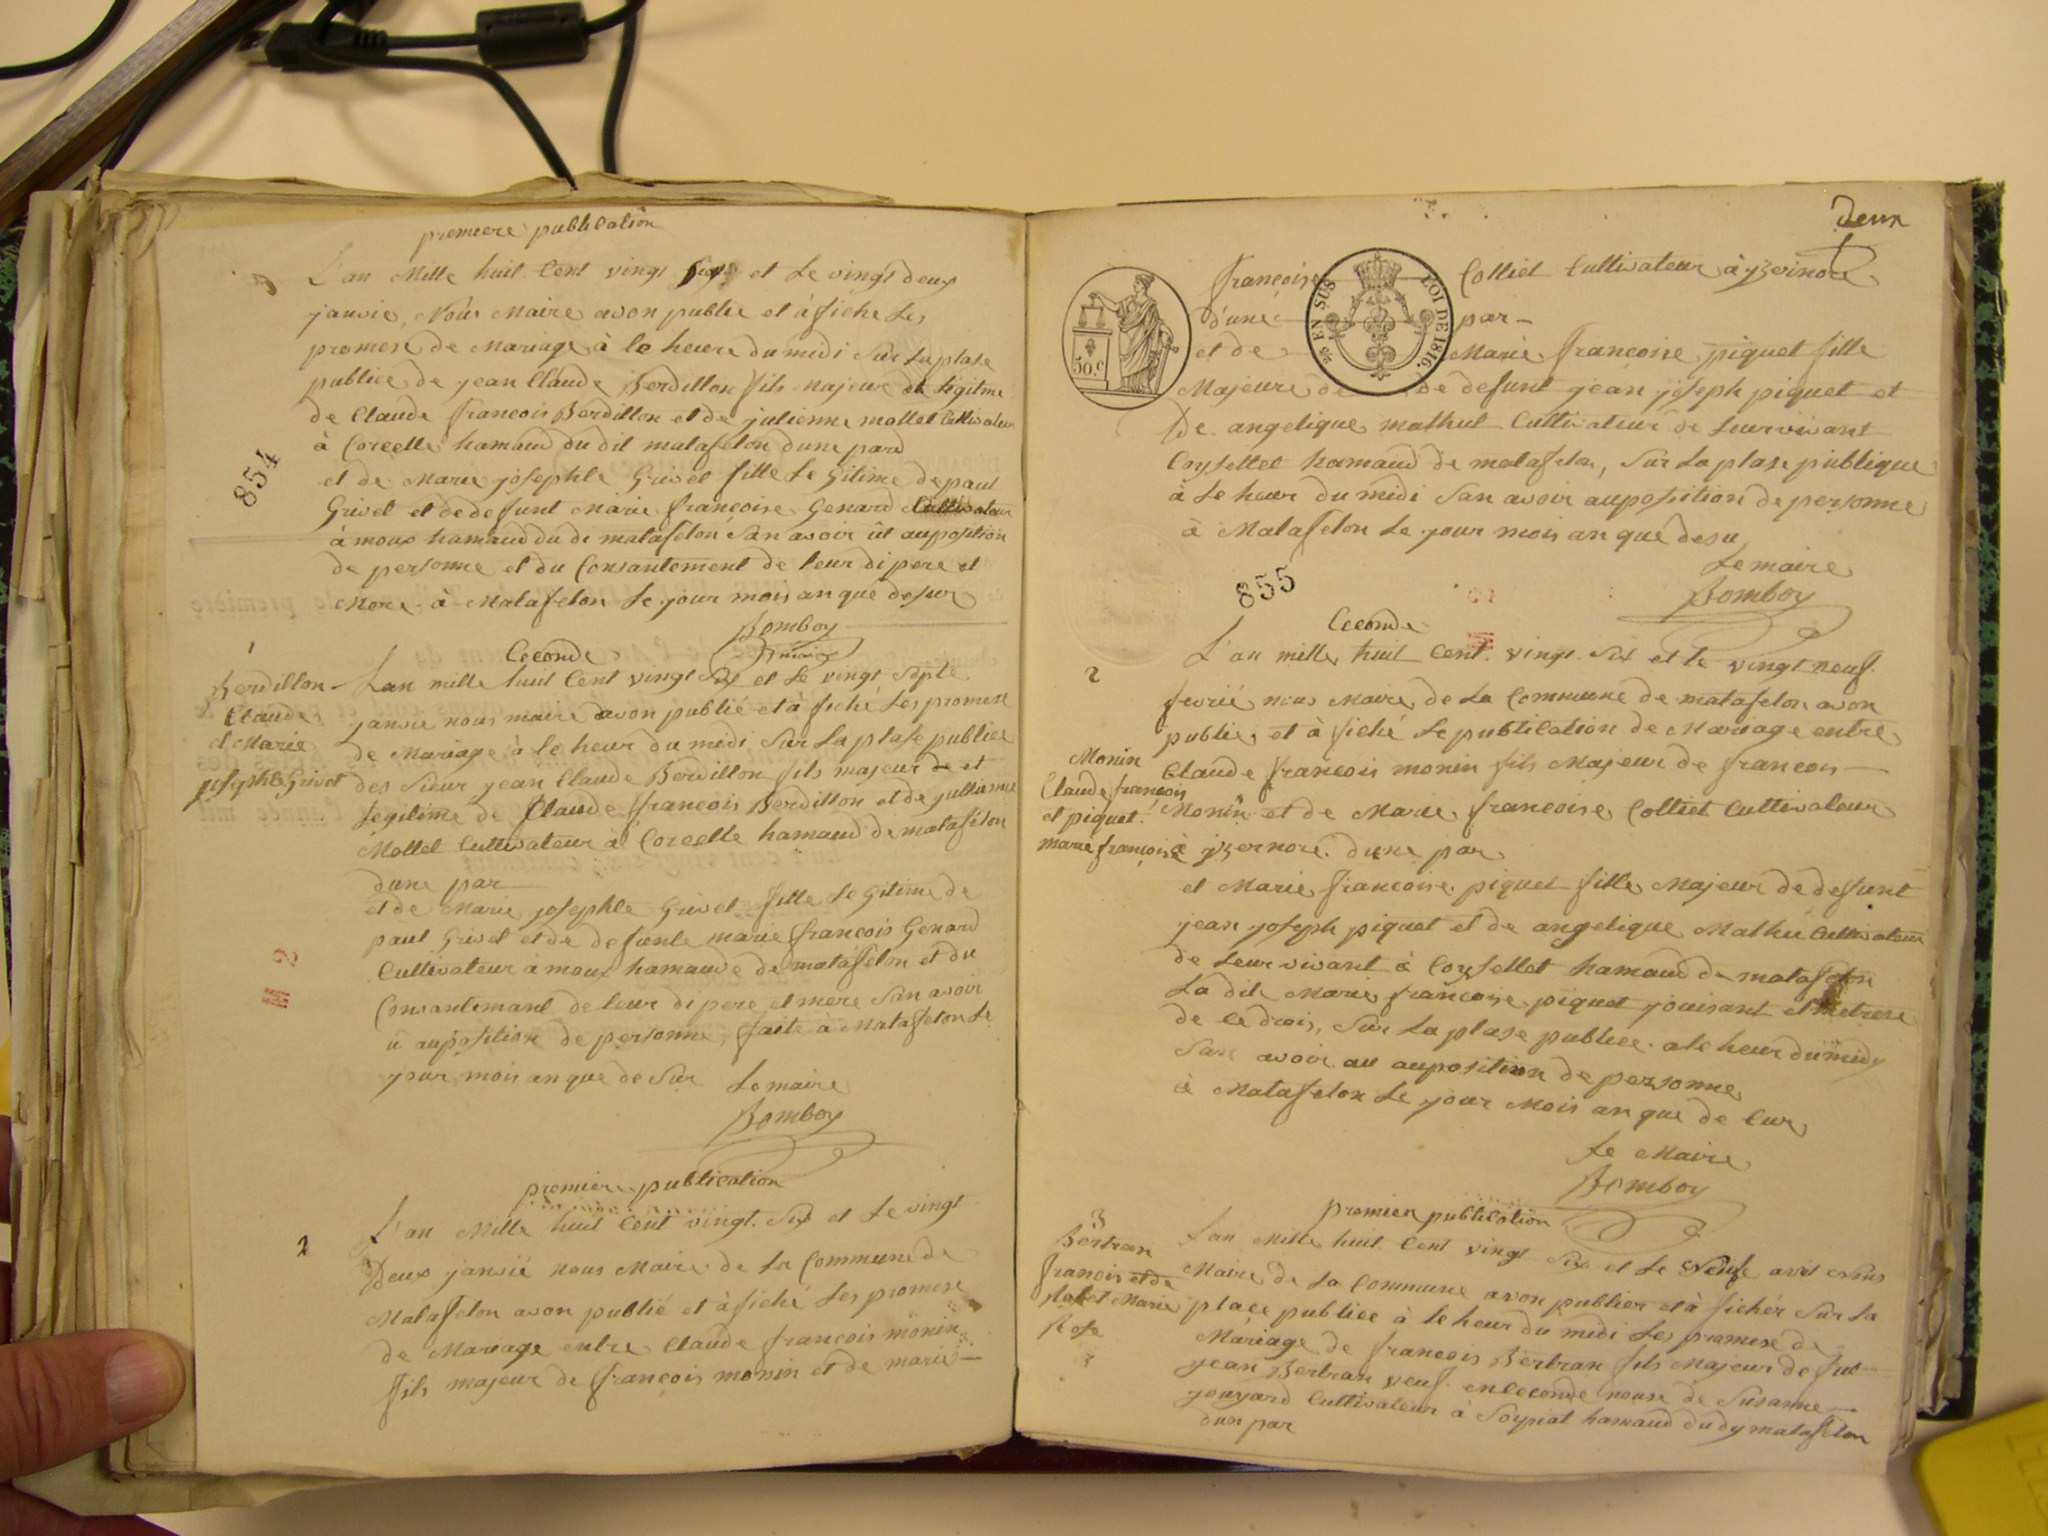 premiere publication
L'an Mille huit Cent vingt Six et Le vingt deux
janvie, Nous Maire avon publie et à fiche Les
promese de Mariage à le heure du midi Sur La plase
publice de jean Claude Berdillon fils Majeur et légitime
de Claude francois Berdillon et de julienne mollet Cultivateur
à Corcelle hamaud du dit matafelon dune pard
et de Marie josephte Grivel fille Le Gitime de paul
Grivel et de defunt Marie francoise Genard Cultivateur
à moux hamaud du de matafelon San avoir ût auposition
de personne et du Consantement de leur di pere et
Mere à Matafelon Le jour mois an que desur
Bomboy
maire
854
1
Berdillon
Claude
et Marie
josephte Grivel
Ceconde
Lan mille huit Cent vingt Six et Le vingt Septe
janvie nous maire avon publié et à fiché Les promese
de Mariage à le heur du midi Sur La plase publice
des Sieur jean Claude Berdillon fils majeur de et
Legitime de Claude francois Berdillon et de jullienne
Mollet Cultivateur à Corcelle hamaud de matafelon
dune par
et de Marie josephte Grivel fille Le Gitime de
paul Grivel et de defunte marie francois Genard
Cultivateur à moux hamaude de matafelon et du
Consantemant de leur di pere et mere San avoir
u auposition de personne, faite à Matafelon Le
jour mois an que de Sur Le maire
Bomboy
2
premiere publication
2
L'an Mille huit Cent vingt Six et Le vingt
Deux janvié nous Maire de La Commune de
Matafelon avon publié et à fiché Les promese
de Mariage entre Claude francois monin
fils majeur de francois monin et de marie
Deux
francoise Colliet Cultivateur à yzernore
d'une par
et de Marie francoise piquet fille
Majeure de de defunt jean joseph piquet et
De angelique mathut Cultivateur de Leurvivant
Coyfellet hamaud de matafelon, Sur La plase publique
à Le heur du midi San avoir auposition de personne
à Matafelon Le jour mois an que desu
Le maire
Bomboy
50.c
25 EN SUS
LOI DE 1816.
855
Ceconde
2
L'an mille huit Cent vingt Six et le vingt neuf
fevrié nous Maire de La Commune de matafelon avon
publie et à fiché Le publication de Mariage entre
Claude francois monin fils Majeur de francois
Monin et de Marie francoise Colliet Cultivateur
à yzernore dune par
Monin
Claude francois
et piquet
marie francoise
et Marie francoise piquet fille Majeur de defunt
jean joseph piquet et de angelique Mathu Cultivateur
de Leurvivant à Coyfellet hamaud de matafelon
La dite Marie francoise piquet jouisant et Metrese
de Ce drois, Sur La plase publice a le heur du midy
San avoir au auposition de personne
à Matafelon Le jour Mois an que de Cur
Le Maire
Bomboy
premier publication
3
Bertran
francis et de
Marie
Rose
Lan Mille huit Cent vingt Six et Le Neuf avril Nous
Maire de La Commune avon publier et à fichér Sur La
place publice à le heur du midi Les promese de
Mariage de francois Bertran fils Majeur de fut
jean Bertran veuf en Ceconde nouse de Susanne
jouyard Cultivateur à Soyriat hamaud dudy matafelon
dun par